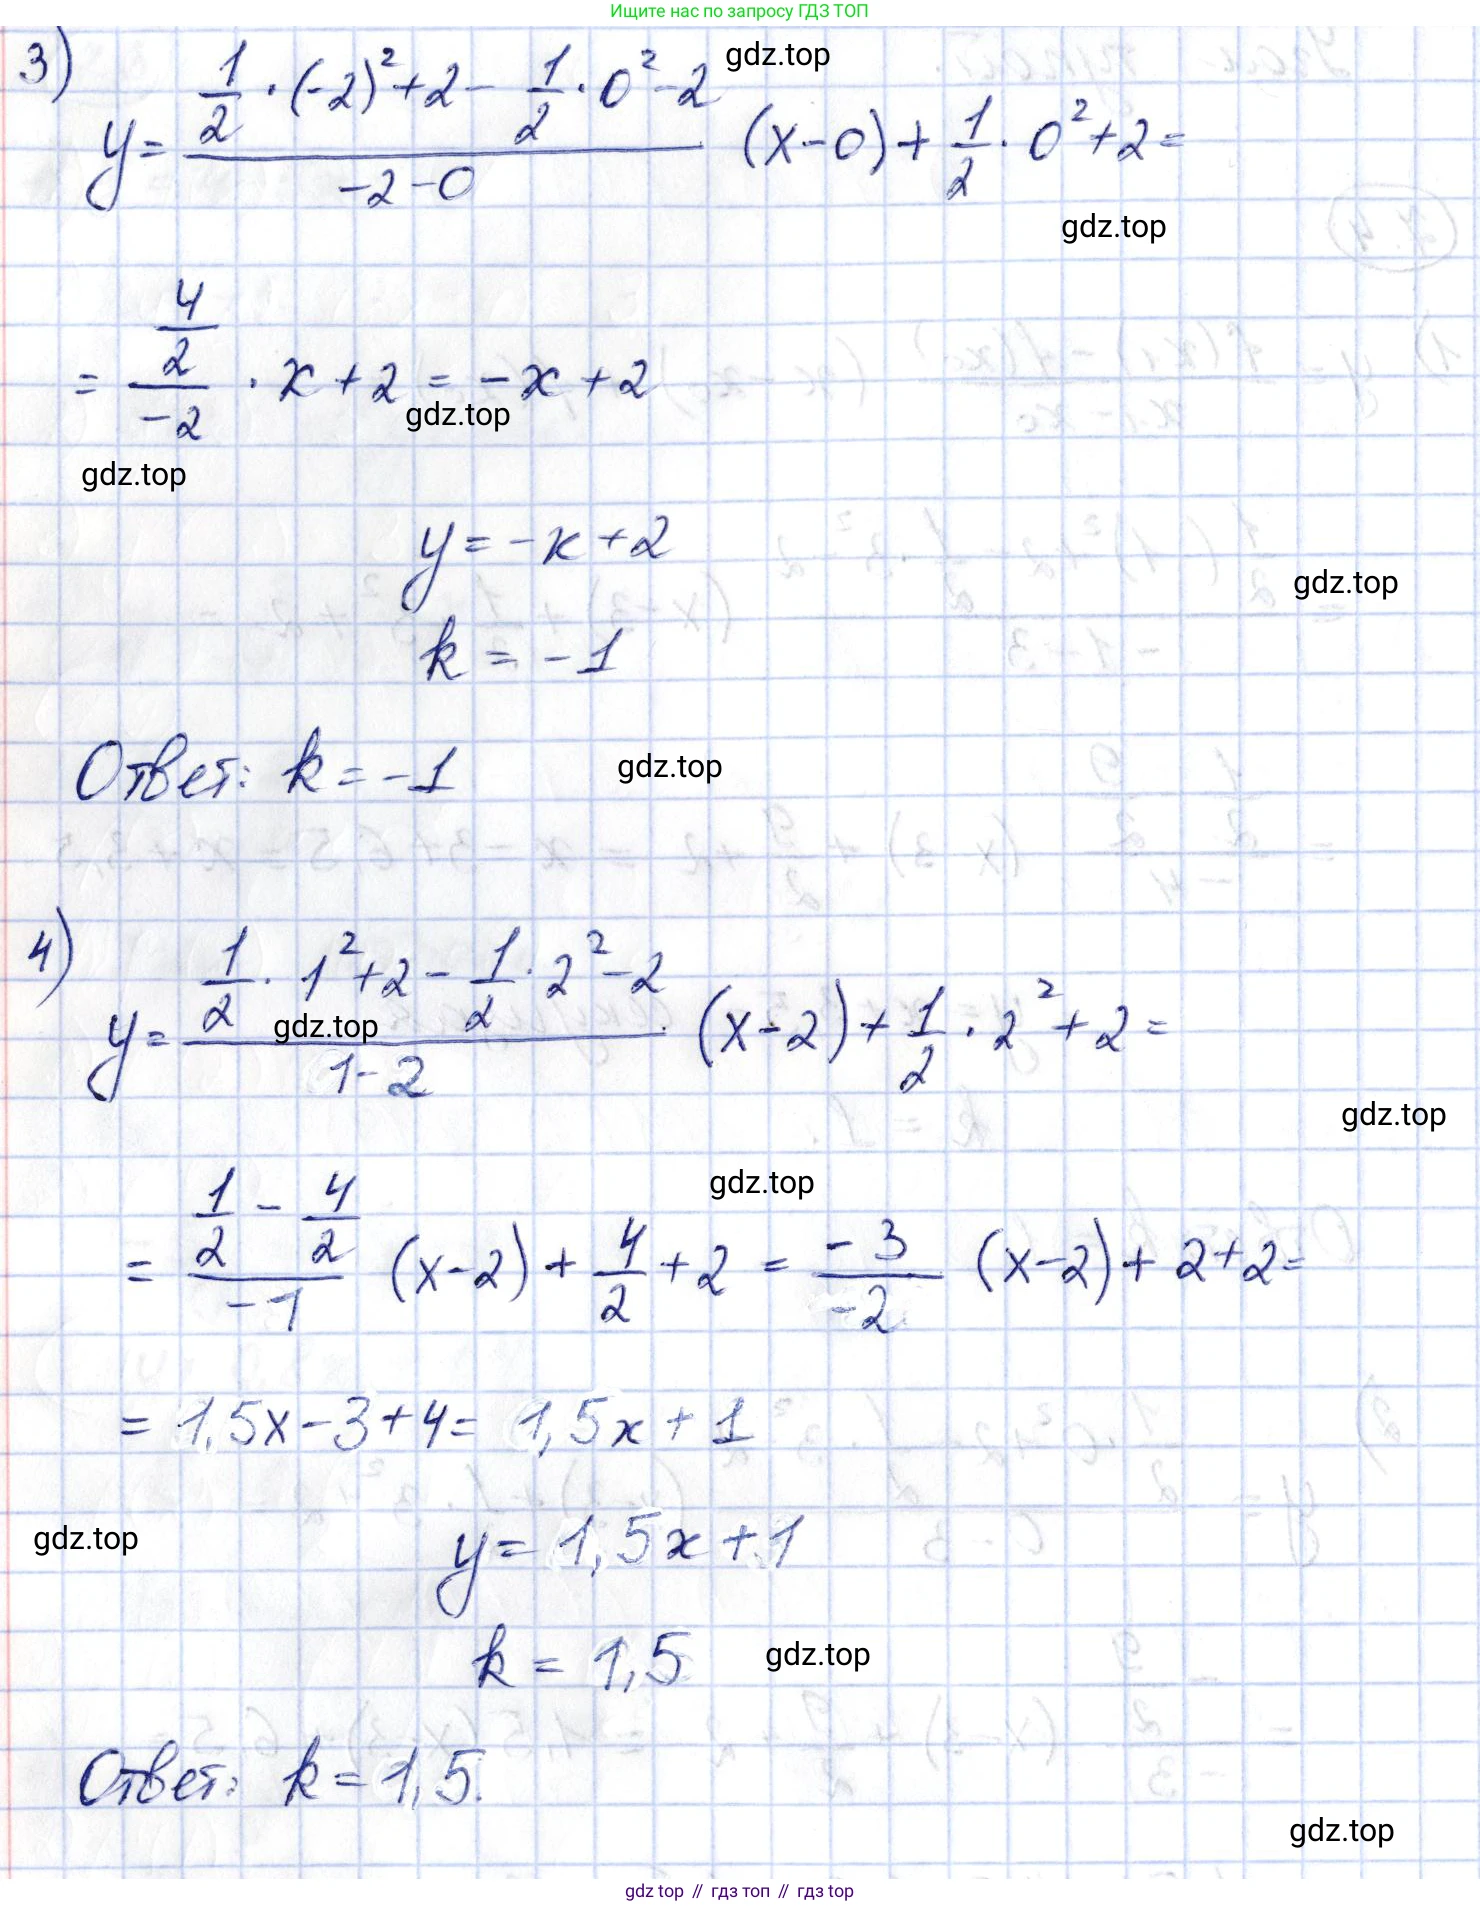 Ищите нас по запросу ГДЗ ТОП
3) y = (1/2 · (-2)² + 2 - 1/2 · 0² - 2)/(-2 - 0) (x - 0) + 1/2 · 0² + 2 =
gdz.top
gdz.top
= (4/2)/(-2) · x + 2 = -x + 2
gdz.top
gdz.top
y = -x + 2
gdz.top
k = -1
Ответ: k = -1
gdz.top
4) y = (1/2 · 1² + 2 - 1/2 · 2² - 2)/(1 - 2) · (x - 2) + 1/2 · 2² + 2 =
gdz.top
gdz.top
gdz.top
= (1/2 - 4/2)/(-1) (x - 2) + 4/2 + 2 = -3/-2 (x - 2) + 2 + 2 =
= 1,5x - 3 + 4 = 1,5x + 1
gdz.top
y = 1,5x + 1
k = 1,5
gdz.top
Ответ: k = 1,5.
gdz.top
gdz top // гдз топ // гдз top